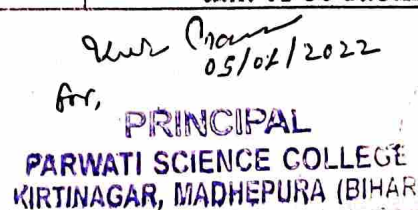 05/01/2022
for,
PRINCIPAL
PARWATI SCIENCE COLLEGE
KIRTINAGAR, MADHEPURA (BIHAR